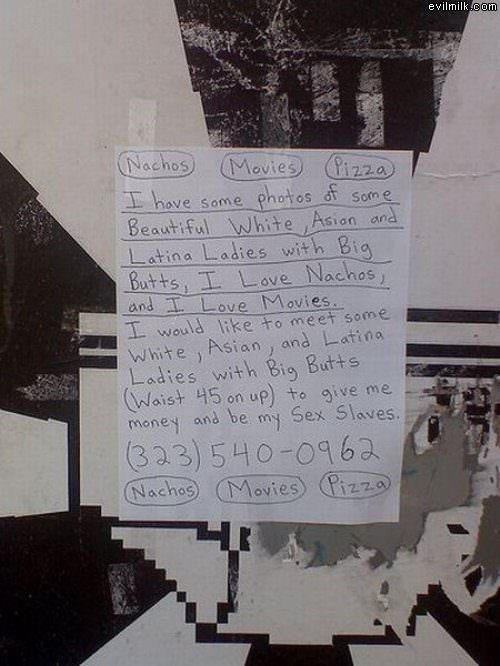 evilmilk.com
Nachos Movies Pizza
I have some photos of some
Beautiful White, Asian and
Latina Ladies with Big
Butts, I Love Nachos,
and I Love Movies.
I would like to meet some
White, Asian, and Latina
Ladies with Big Butts
(Waist 45 on up) to give me
money and be my Sex Slaves.
(323) 540-0962
Nachos Movies Pizza